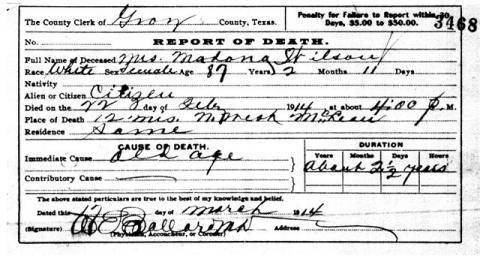 The County Clerk of Gray County, Texas. Penalty for Failure to Report within 30 Days, $5.00 to $50.00.
3468
No. REPORT OF DEATH.
Full Name of Deceased Mrs. Mahona Wilson
Race White Sex Female Age 87 Years 2 Months 11 Days
Nativity
Alien or Citizen Citizen
Died on the 22 day of Feby 1914 at about 4:00 P. M.
Place of Death 12 mis. N. McLean
Residence Same
CAUSE OF DEATH. DURATION
Immediate Cause Old age
Years Months Days Hours
About 2½ years
Contributory Cause
The above stated particulars are true to the best of my knowledge and belief.
Dated this day of March 1914
(Signature) Ballard MD Address
(Physician, Accoucheur, or Coroner)